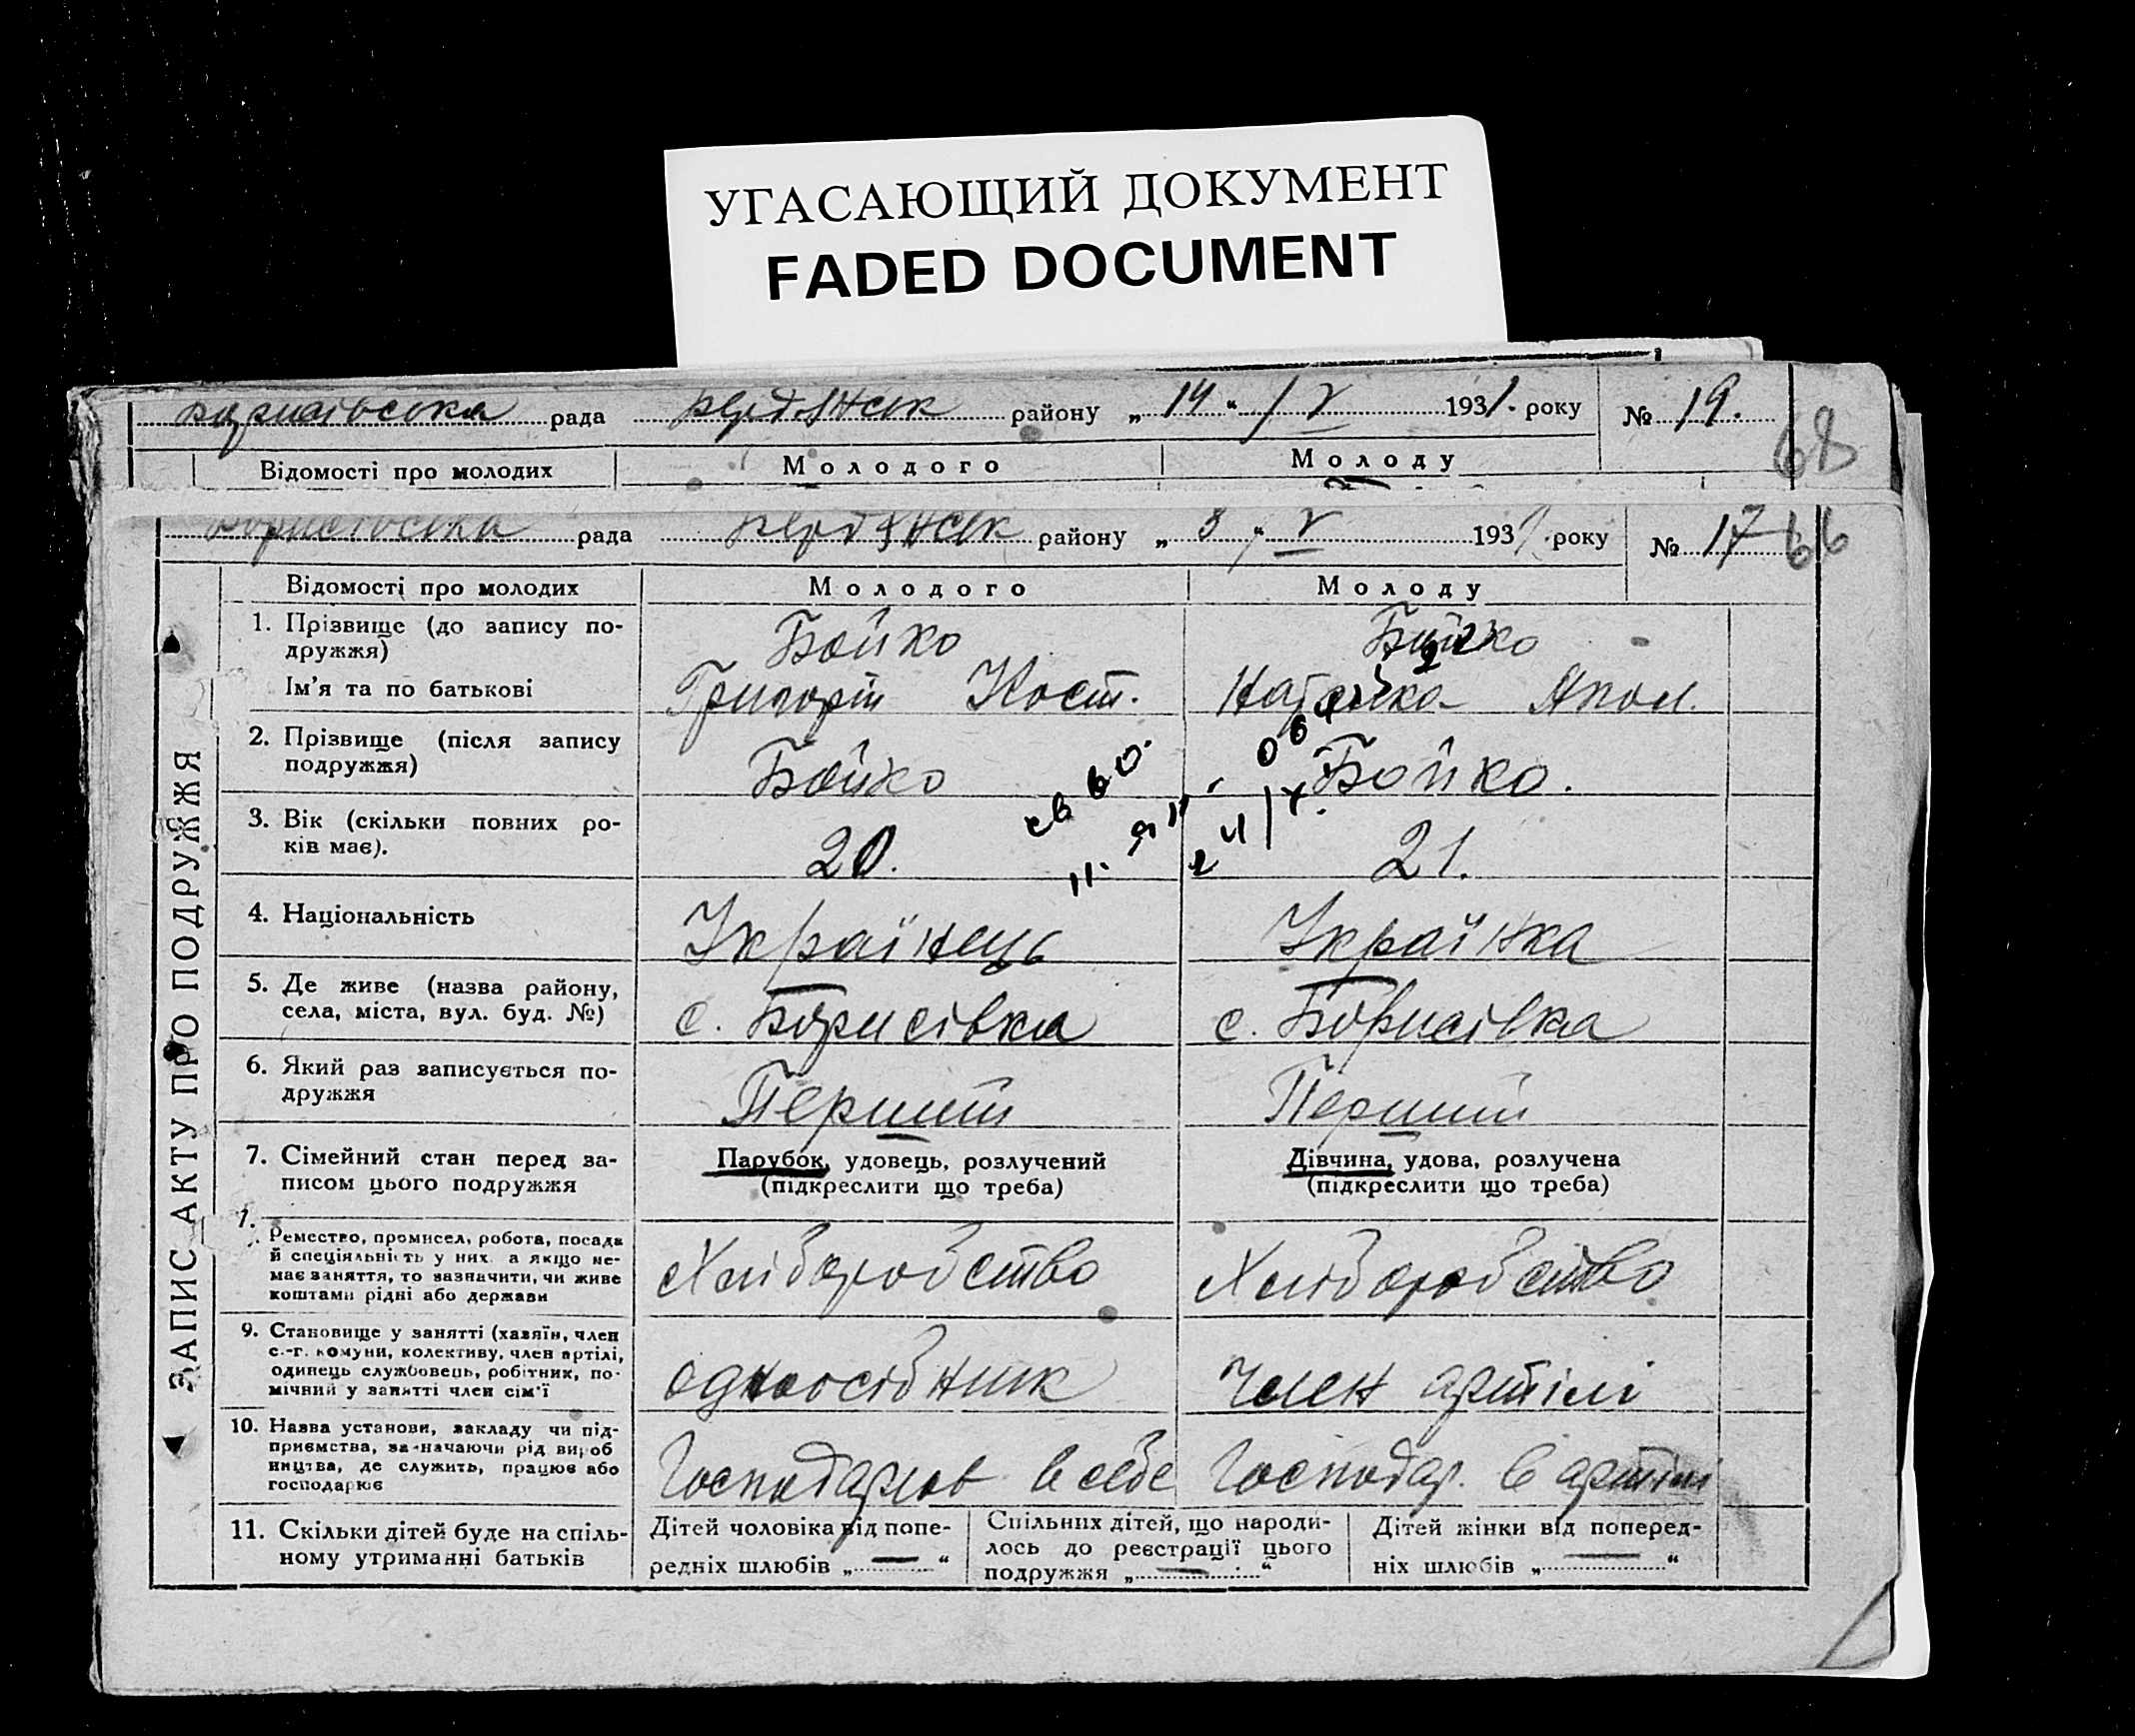 УГАСАЮЩИЙ ДОКУМЕНТ
FADED DOCUMENT
Борисівська рада Бердянськ району „ 14 “ / V 1931. року № 19.
68
Відомості про молодих Молодого Молоду
Борисівська рада Бердянськ району „ 3 “ V 1931. року № 17 66
ЗАПИС АКТУ ПРО ПОДРУЖЖЯ
Відомості про молодих Молодого Молоду
1. Прізвище (до запису по-
дружжя) Бойко Бойко
Ім'я та по батькові Григорій Кост. Наталка Апол.
2. Прізвище (після запису
подружжя) Бойко Бойко.
3. Вік (скільки повних ро-
ків має). 20. 21.
4. Національність Українець Українка
5. Де живе (назва району,
села, міста, вул. буд. №) с. Борисівка с. Борисівка
6. Який раз записується по-
дружжя Перший Перший
7. Сімейний стан перед за-
писом цього подружжя
Парубок, удовець, розлучений
(підкреслити що треба)
Дівчина, удова, розлучена
(підкреслити що треба)
Ремество, промисел, робота, посада
й спеціяльність у них, а якщо не-
має заняття, то зазначити, чи живе
коштами рідні або держави
Хліборобство Хліборобство
9. Становище у занятті (хазяїн, член
с.-г. комуни, колективу, член артілі,
одинець службовець, робітник, по-
мічний у занятті член сім'ї
одноосібник член артілі
10. Назва установи, закладу чи під-
приємства, зазначаючи рід вироб
ництва, де служить, працює або
господарює
Господарює в себе Господар. в артілі
11. Скільки дітей буде на спіль-
ному утриманні батьків
Дітей чоловіка від попе-
редніх шлюбів „ — “
Спільних дітей, що народи-
лось до реєстрації цього
подружжя „ — “
Дітей жінки від поперед-
ніх шлюбів „ — “